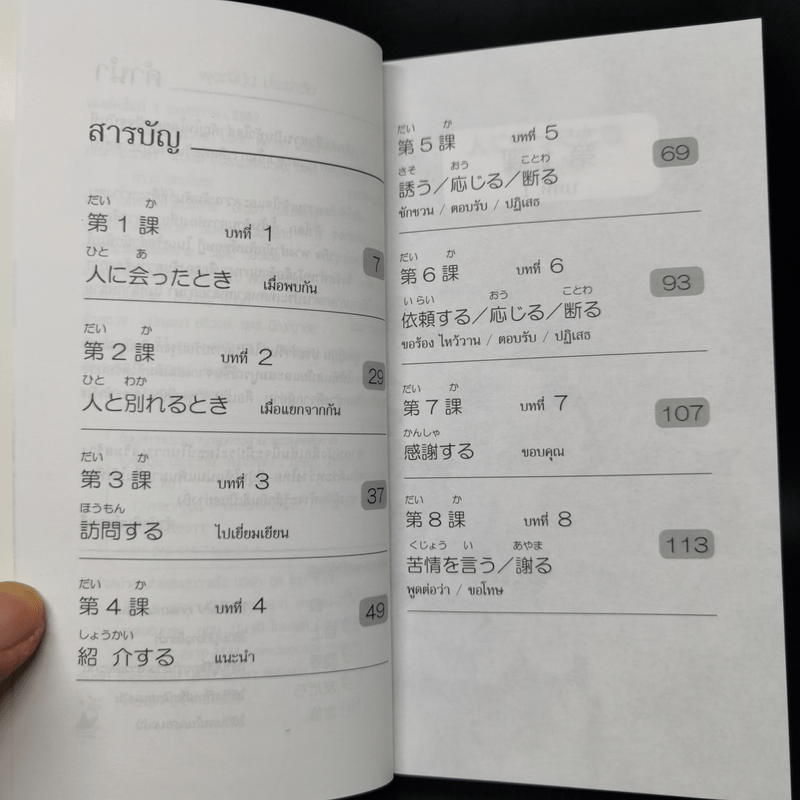 สารบัญ
だい か
第1課 บทที่ 1
ひと あ
人に会ったとき เมื่อพบกัน
7
だい か
第2課 บทที่ 2
ひと わか
人と別れるとき เมื่อแยกจากกัน
29
だい か
第3課 บทที่ 3
ほうもん
訪問する ไปเยี่ยมเยียน
37
だい か
第4課 บทที่ 4
しょうかい
紹介する แนะนำ
49
だい か
第5課 บทที่ 5
さそ おう ことわ
誘う/応じる/断る
ชักชวน / ตอบรับ / ปฏิเสธ
69
だい か
第6課 บทที่ 6
いらい おう ことわ
依頼する/応じる/断る
ขอร้อง ไหว้วาน / ตอบรับ / ปฏิเสธ
93
だい か
第7課 บทที่ 7
かんしゃ
感謝する ขอบคุณ
107
だい か
第8課 บทที่ 8
くじょう い あやま
苦情を言う/謝る
พูดต่อว่า / ขอโทษ
113